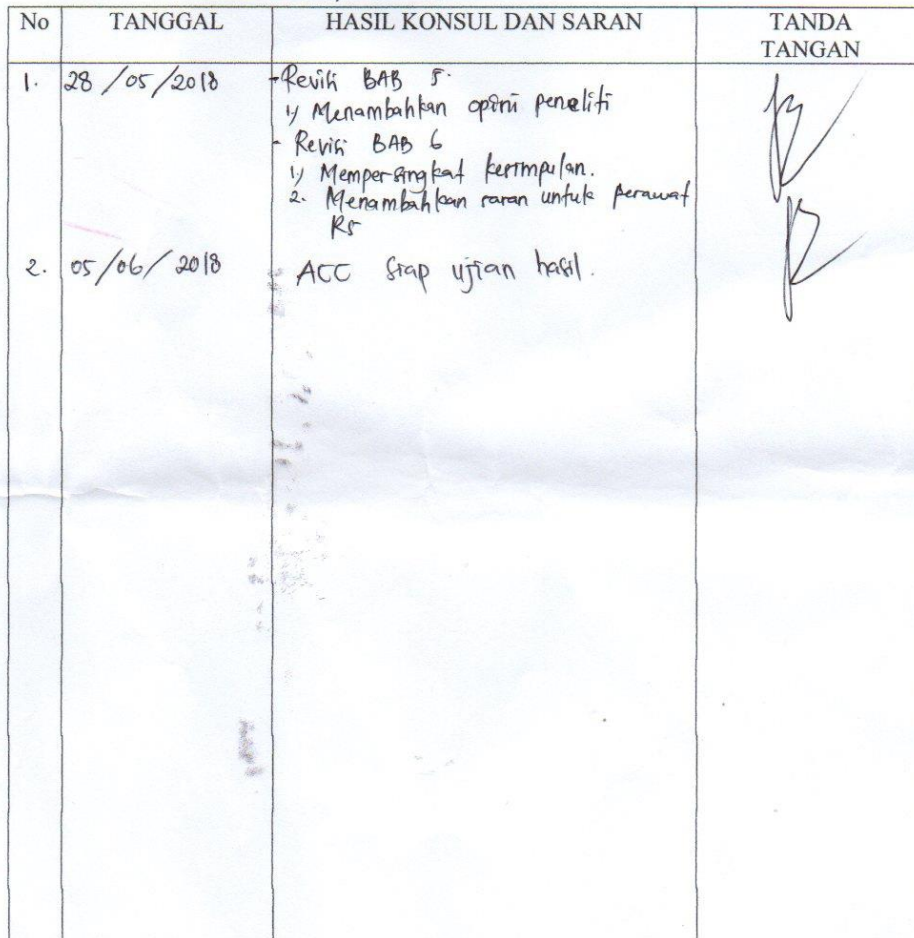 No TANGGAL HASIL KONSUL DAN SARAN TANDA
TANGAN
1. 28/05/2018 - Revisi BAB 5.
1) Menambahkan opini peneliti
- Revisi BAB 6
1) Mempersingkat kesimpulan.
2. Menambahkan saran untuk perawat
RS
2. 05/06/2018 ACC siap ujian hasil.